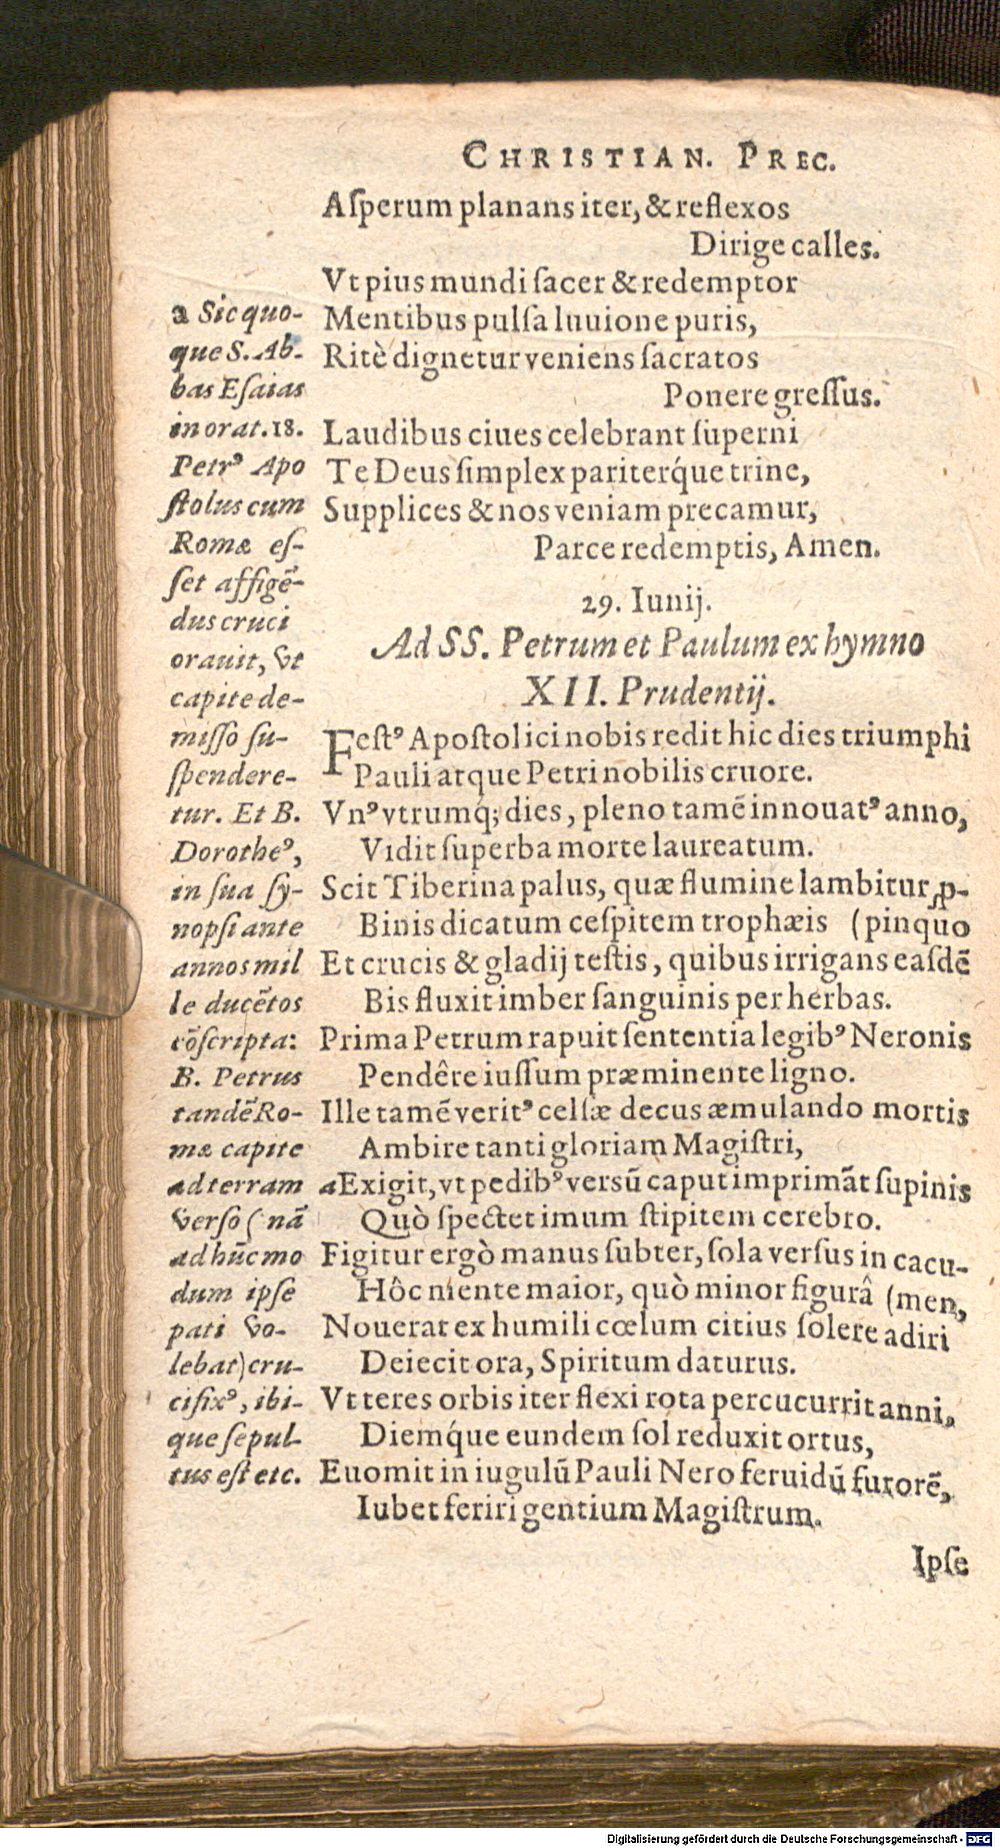 CHRISTIAN. PREC.
Aſperum planans iter, & reflexos
Dirige calles.
Vt pius mundi ſacer & redemptor
Mentibus pulſa luuione puris,
Ritè dignetur veniens ſacratos
Ponere greſſus.
Laudibus ciues celebrant ſuperni
Te Deus ſimplex pariterq́ue trine,
Supplices & nos veniam precamur,
Parce redemptis, Amen.
29. Iunij.
Ad SS. Petrum et Paulum ex hymno
XII. Prudentij.
Feſtꝰ Apoſtolici nobis redit hic dies triumphi
Pauli atque Petri nobilis cruore.
Vnꝰ vtrumq́; dies, pleno tamē innouatꝰ anno,
Vidit ſuperba morte laureatum.
Scit Tiberina palus, quæ flumine lambitur ꝓ-
Binis dicatum ceſpitem trophæis (pinquo
Et crucis & gladij teſtis, quibus irrigans eaſdē
Bis fluxit imber ſanguinis per herbas.
Prima Petrum rapuit ſententia legibꝰ Neronis
Pendêre iuſſum præminente ligno.
Ille tamē veritꝰ celſæ decus æmulando mortis
Ambire tanti gloriam Magiſtri,
aExigit, vt pedibꝰ verſū caput imprimāt ſupinis
Quò ſpectet imum ſtipitem cerebro.
Figitur ergò manus ſubter, ſola verſus in cacu-
Hôc mente maior, quò minor figurâ (men,
Nouerat ex humili cœlum citius ſolere adiri
Deiecit ora, Spiritum daturus.
Vt teres orbis iter flexi rota percucurrit anni,
Diemq́ue eundem ſol reduxit ortus,
Euomit in iugulū Pauli Nero feruidū furorē,
Iubet feriri gentium Magiſtrum.
Ipſe
a Sic quo-
que S. Ab-
bas Eſaias
in orat. 18.
Petrꝰ Apo
ſtolus cum
Romæ eſ-
ſet affigē-
dus cruci
orauit, vt
capite de-
miſſo ſu-
ſpendere-
tur. Et B.
Dorotheꝰ,
in ſua ſy-
nopſi ante
annos mil
le ducētos
cōſcripta:
B. Petrus
tandē Ro-
mæ capite
ad terram
verſo (nā
ad hūc mo
dum ipſe
pati vo-
lebat) cru-
cifixꝰ, ibi-
que ſepul-
tus eſt etc.
Digitalisierung gefördert durch die Deutsche Forschungsgemeinschaft - DFG